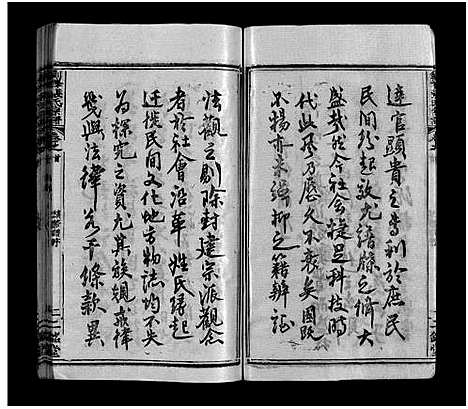 達官顯貴之專利於庶民
民間紛起效尤譜牒之脩大
盛哉然今社會提足科技時
代此風乃應久不衰矣國既
不揚亦未繩抑之籍辨证
法觀之剔除封建宗派觀念
者於社會沿革姓氏緣起
迁徙民間文化地方物誌均不失
為探究之資尤其族規戒律
幾與法律若干條款異